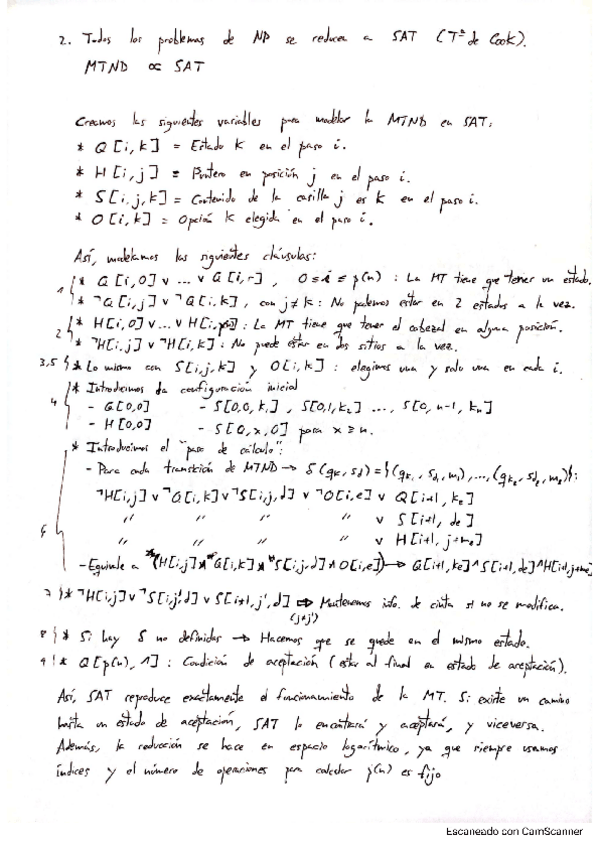 2. Todos los problemas de NP se reducen a SAT (Tª de Cook).
MTND ∝ SAT
Creamos las siguientes variables para modelar la MTND en SAT:
* Q[i,k] = Estado k en el paso i.
* H[i,j] = Puntero en posición j en el paso i.
* S[i,j,k] = Contenido de la casilla j es k en el paso i.
* O[i,k] = Opción k elegida en el paso i.
Así, modelamos las siguientes cláusulas:
1 * Q[i,0] ∨ ... ∨ Q[i,r] , 0≤i≤p(n) : La MT tiene que tener un estado.
* ¬Q[i,j] ∨ ¬Q[i,k] , con j≠k : No podemos estar en 2 estados a la vez.
2 * H[i,0] ∨ ... ∨ : La MT tiene que tener el cabezal en alguna posición.
* ¬H[i,j] ∨ ¬H[i,k] : No puede estar en dos sitios a la vez.
3,5 * Lo mismo con S[i,j,k] y O[i,k] : elegimos una y solo una en cada i.
4 * Introducimos la configuración inicial
- Q[0,0] - S[0,0,k₁] , S[0,1,k₂] ..., S[0, n-1, kₙ]
- H[0,0] - S[0,x,0] para x ≥ n.
* Introducimos el "paso de cálculo":
- Para cada transición de MTND → δ(qk, sd) = {(qk₁, sd₁, m₁), ..., (qkₑ, sdₑ, mₑ)}:
¬H[i,j] ∨ ¬Q[i,k] ∨ ¬S[i,j,d] ∨ ¬O[i,e] ∨ Q[i+1, kₑ]
" " " " ∨ S[i+1, dₑ]
" " " " ∨ H[i+1, j+mₑ]
- Equivale a (H[i,j] ∧ Q[i,k] ∧ S[i,j,d] ∧ O[i,e]) → Q[i+1,kₑ] ∧ S[i+1,dₑ] ∧ H[i+1,j+mₑ]
7 * ¬H[i,j] ∨ ¬S[i,j',d] ∨ S[i+1,j',d] ⇒ Mantenemos info. de cinta si no se modifica.
(j≠j')
8 * Si hay δ no definidas → Hacemos que se quede en el mismo estado.
9 * Q[p(n), 1] : Condición de aceptación (estar al final en estado de aceptación).
Así, SAT reproduce exáctamente el funcionamiento de la MT. Si existe un camino
hasta un estado de aceptación, SAT lo encontrará y aceptará, y viceversa.
Además, la reducción se hace en espacio logarítmico, ya que siempre usamos
índices y el número de operaciones para calcular p(n) es fijo
Escaneado con CamScanner